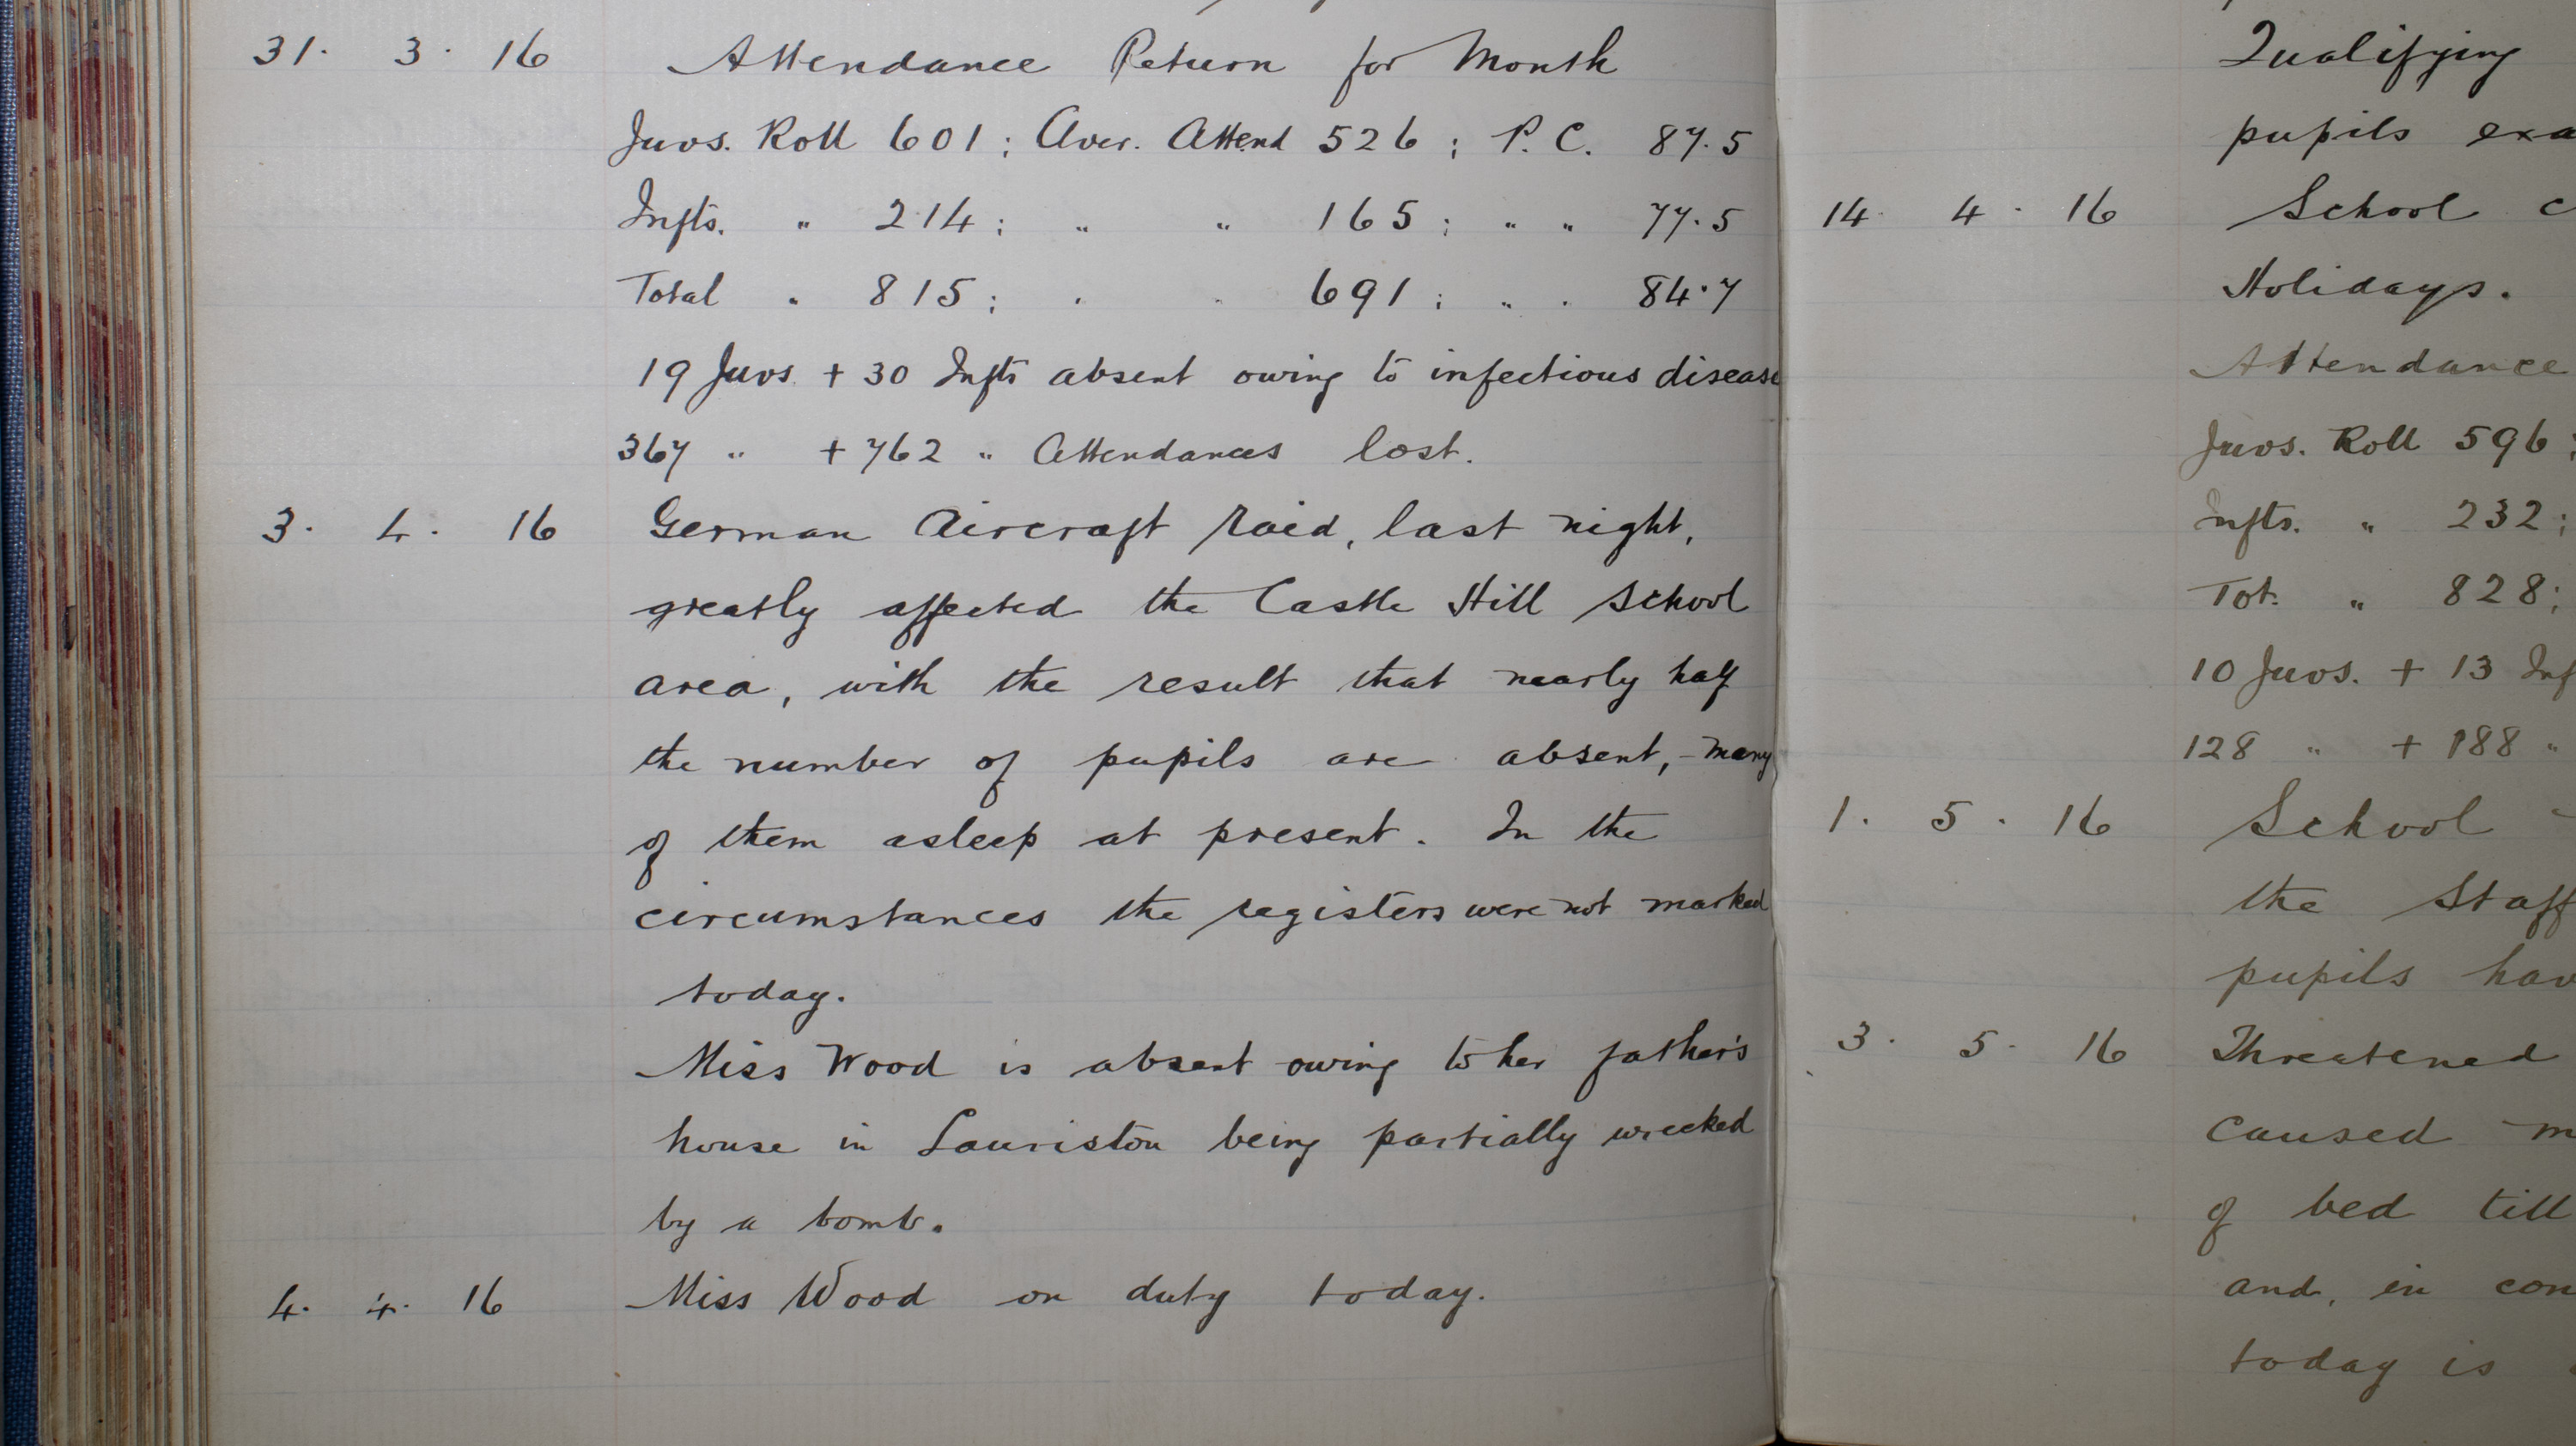 31. 3. 16 Attendance Return for Month
Juvs. Roll 601; Aver. Attend 526; P.C. 87.5
Infts. " 214; " " 165; " " 77.5
Total " 815; " " 691; " " 84.7
19 Juvs. + 30 Infts absent owing to infectious disease
367 " + 762 " Attendances lost.
3. 4. 16 German Aircraft raid, last night,
greatly affected the Castle Hill School
area, with the result that nearly half
the number of pupils are absent, - many
of them asleep at present. In the
circumstances the registers were not marked
today.
Miss Wood is absent owing to her father's
house in Lauriston being partially wrecked
by a bomb.
4. 4. 16 Miss Wood on duty today.
Qualifying
pupils exa
14. 4. 16 School c
Holidays.
Attendance
Juvs. Roll 596;
Infts. " 232;
Tot. " 828;
10 Juvs. + 13 Inf
128 " + 188 "
1. 5. 16 School
the Staff
pupils hav
3. 5. 16 Threatened
caused m
of bed till
and, in con
today is